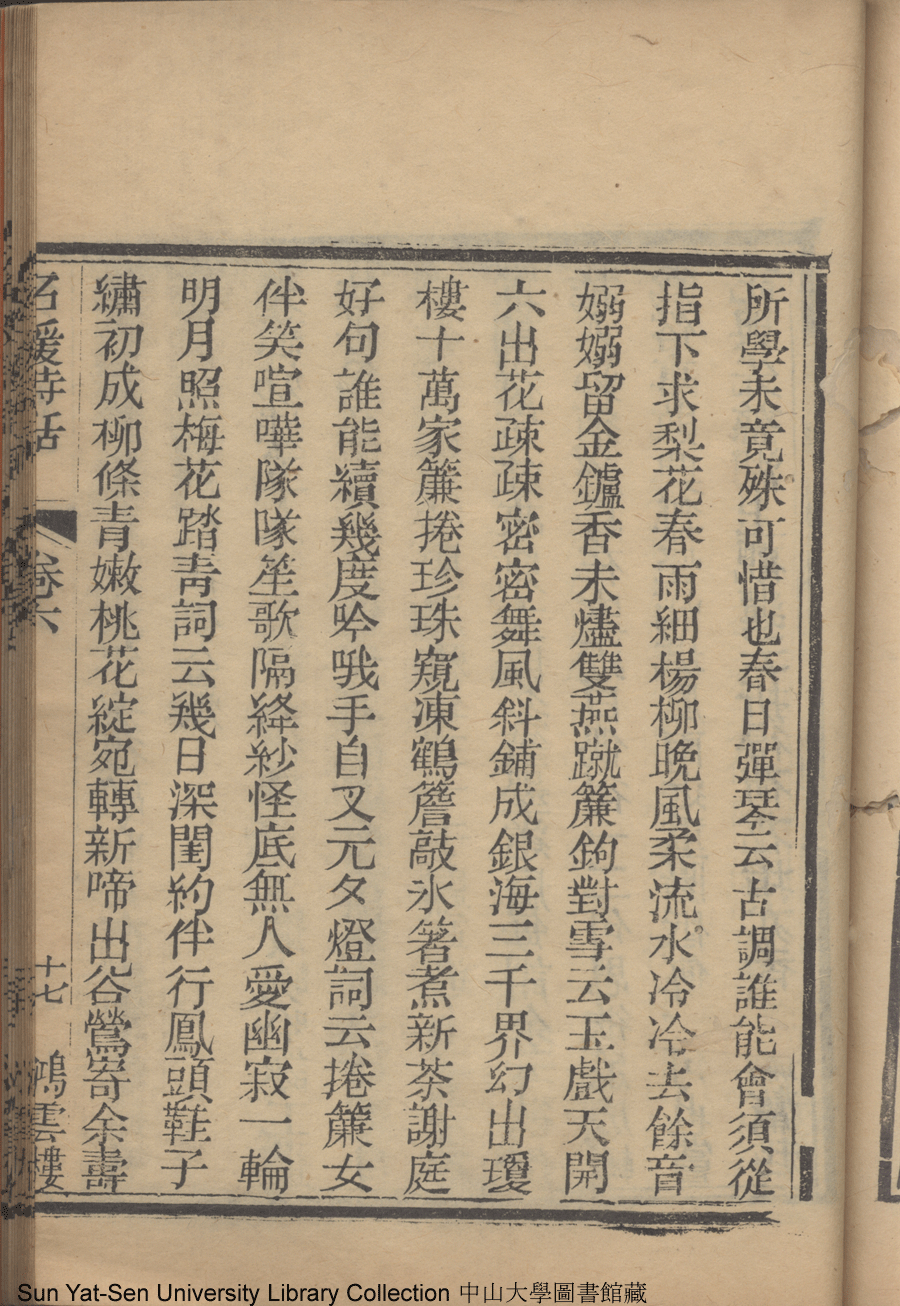 所學未竟殊可惜也春日彈琴云古調誰能會須從
指下求梨花春雨細楊柳晚風柔流水冷冷去餘音
嫋嫋留金鑪香未燼雙燕蹴簾鉤對雪云玉戲天開
六出花疎疎密密舞風斜鋪成銀海三千界幻出瓊
樓十萬家簾捲珍珠窺凍鶴簷敲氷箸煮新茶謝庭
好句誰能續幾度吟哦手自叉元夕燈詞云捲簾女
伴笑喧嘩隊隊笙歌隔絳紗怪底無人愛幽寂一輪
明月照梅花踏青詞云幾日深閨約伴行鳳頭鞋子
繡初成柳條青嫩桃花綻宛轉新啼出谷鶯寄余壽
名媛詩話 卷六 十七 鴻雲樓
Sun Yat-Sen University Library Collection 中山大學圖書館藏